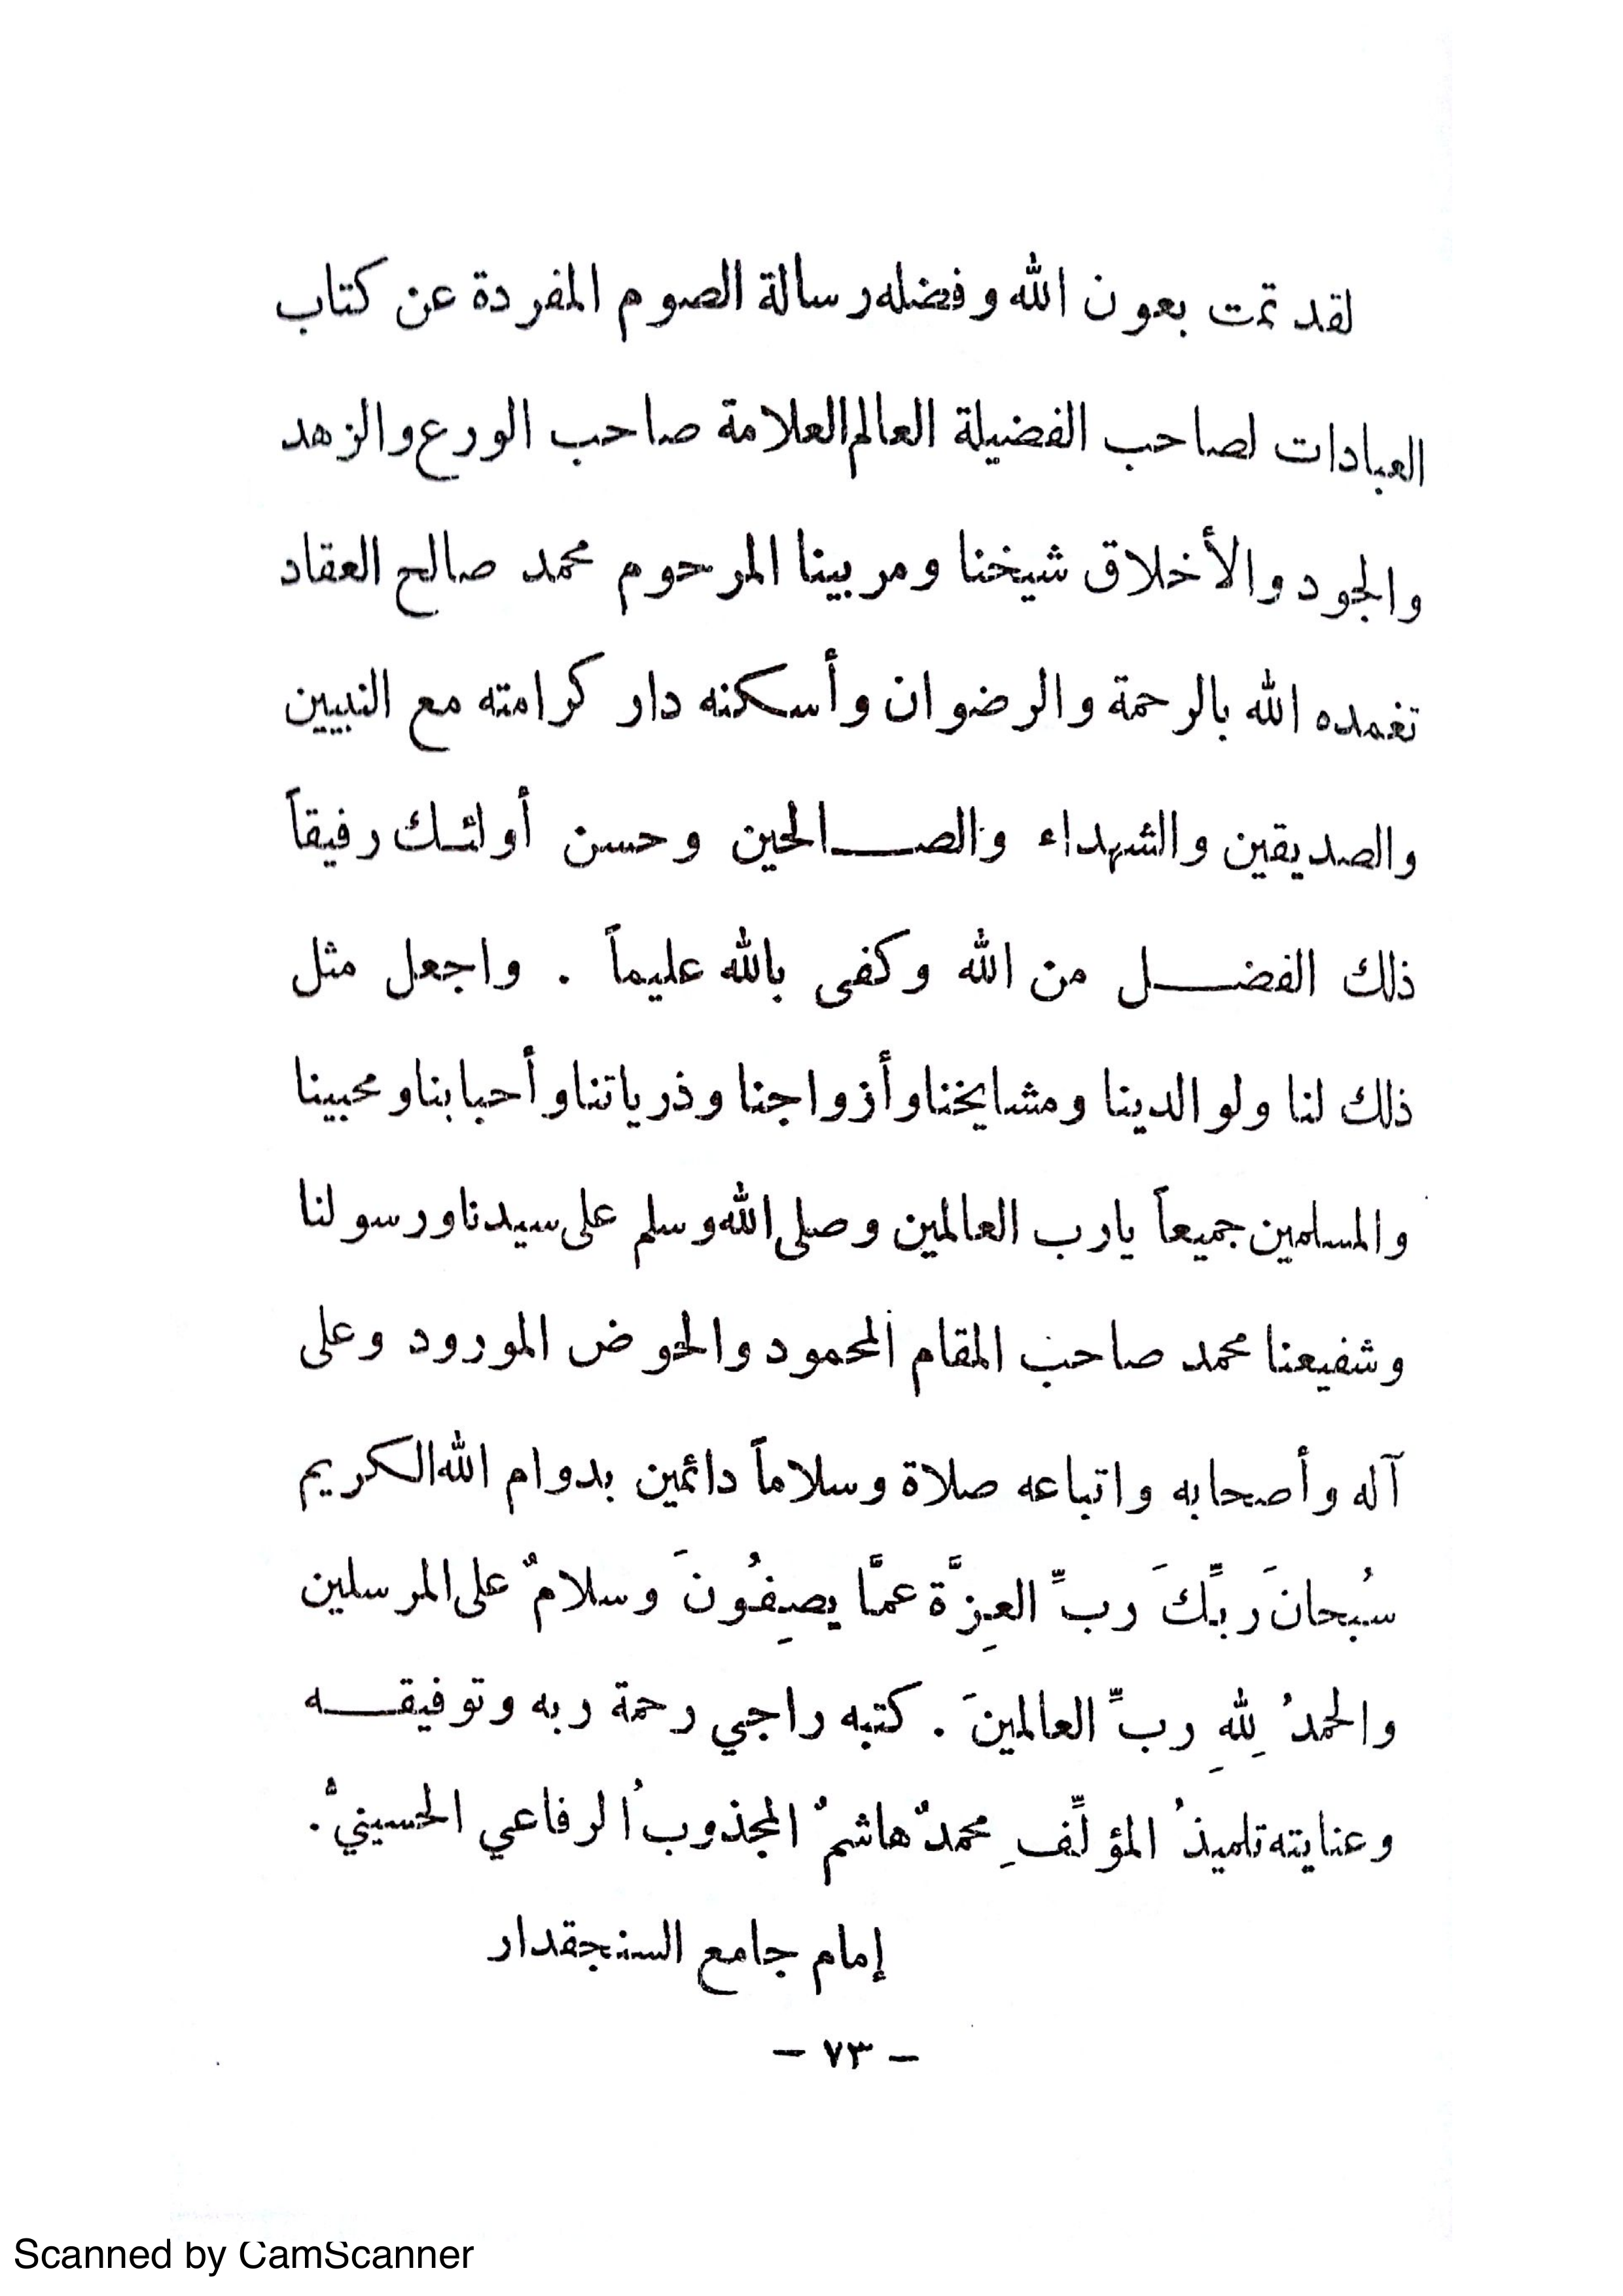 لقد تمت بعون الله وفضله رسالة الصوم المفردة عن كتاب
العبادات لصاحب الفضيلة العالم العلامة صاحب الورع والزهد
والجود والأخلاق شيخنا ومربينا المرحوم محمد صالح العقاد
تغمده الله بالرحمة والرضوان وأسكنه دار كرامته مع النبيين
والصديقين والشهداء والصـــالحين وحسن أولئـك رفيقاً
ذلك الفضـــل من الله وكفى بالله عليماً . واجعل مثل
ذلك لنا ولوالدينا ومشايخنا وأزواجنا وذرياتنا وأحبابنا ومحبينا
والمسلمين جميعاً يارب العالمين وصلى الله وسلم على سيدنا ورسولنا
وشفيعنا محمد صاحب المقام المحمود والحوض المورود وعلى
آله وأصحابه واتباعه صلاة وسلاماً دائمين بدوام الله الكريم
سُبحانَ ربِّكَ ربِّ العِزَّة عمَّا يصِفُونَ وسلامٌ على المرسلين
والحمدُ لِلهِ ربِّ العالمينَ . كتبه راجي رحمة ربه وتوفيقـــه
وعنايته تلميذُ المؤلِّفِ محمدٌ هاشمٌ المجذوبُ الرفاعي الحسينيُّ .
إمام جامع السنجقدار
– ٧٣ –
Scanned by CamScanner